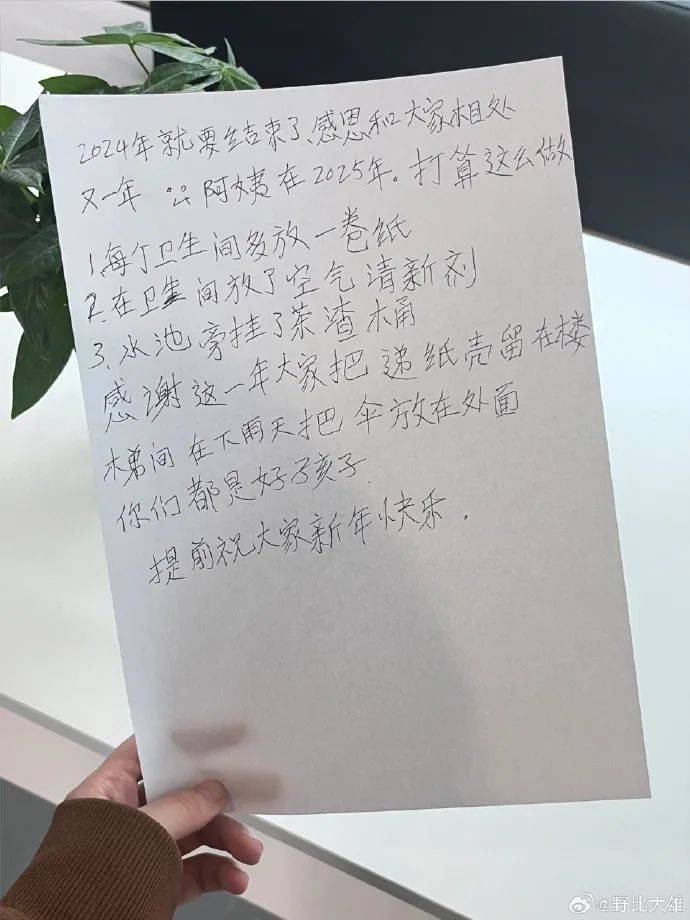 2024年就要结束了、感恩和大家相处
又一年 阿姨在2025年。打算这么做
1.每个卫生间多放一卷纸
2.在卫生间放了空气清新剂
3、水池旁挂了茶渣桶
感谢这一年大家把递纸壳留在楼
梯间 在下雨天把伞放在外面
你们都是好孩子.
提前祝大家新年快乐。
@野比大雄